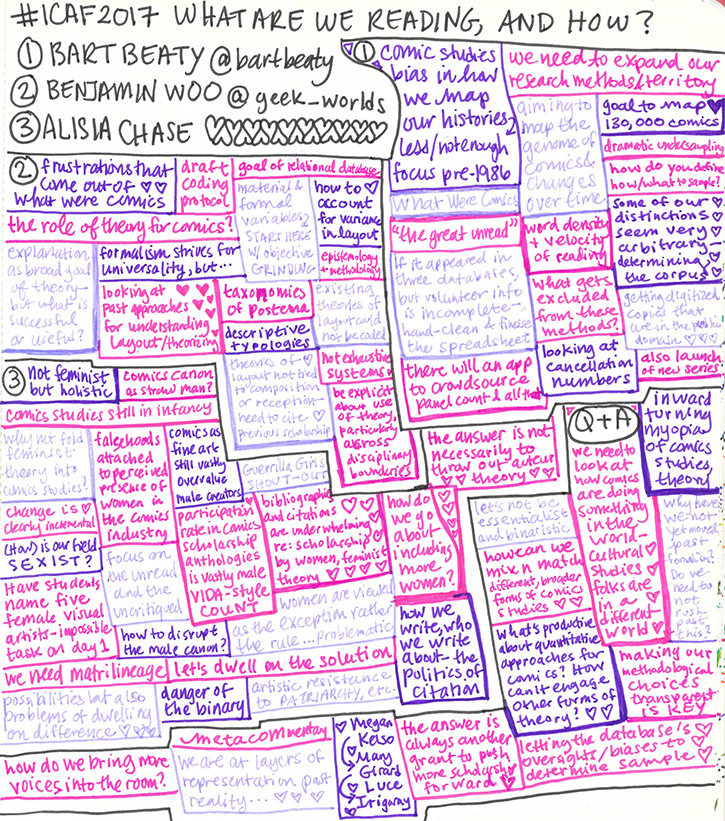 #ICAF2017 WHAT ARE WE READING, AND HOW?
① BART BEATY @bartbeaty
② BENJAMIN WOO @geek_worlds
③ ALISIA CHASE
①
comic studies
bias in how
we map
our histories
less/not enough
focus pre-1986
we need to expand our
research methods/territory
aiming to
map the
genome of
comics &
changes
over time
goal to map
130,000 comics
dramatic undersampling
how do you define
how/what to sample?
What Were Comics
"the great unread"
If it appeared in
three databases,
but volunteer info
is incomplete-
hand-clean & finesse
the spreadsheet
there will an app
to crowdsource
panel count & all that
word density
+ velocity
of reading
what gets
excluded
from these
methods?
some of our
distinctions
seem very
arbitrary-
determining
the corpus
getting digitized
copies that
are in the public
domain
looking at
cancellation
numbers
also launch
of new series
②
frustrations that
come out of
what were comics
draft
coding
protocol
goal of relational database
material &
formal
variables
START HERE
w/ objective
GRINDING
how to
account
for variance
in layout
epistemology
+ methodology
the role of theory for comics?
explanation
as broad goal
of theory-
but what is
successful
or useful?
formalism strives for
universality, but...
looking at
past approaches
for understanding
layout/theorizing
taxonomies
of postema
descriptive
typologies
existing
theories of
layout could
not be coded
theories of
layout not tied
to composition
or reception-
need to cite
previous scholarship
not exhaustive
systems
be explicit
about use
of theory,
particularly
across
disciplinary
boundaries
③
not feminist
but holistic
comics canon
as straw man?
comics studies still in infancy
why not fold
feminist
theory into
comics studies?
falsehoods
attached
to perceived
presence of
women in
the comics
industry
comics as
fine art
still vastly
overvalue
male creators
Guerrilla Girls
shout-out
change is
clearly incremental
(How) is our field
SEXIST?
focus on
the unread
and the
uncritiqued
participation
rate in comics
scholarship
anthologies
is vastly male
VIDA-style
COUNT
bibliographies
and citations
are underwhelming
re: scholarship
by women, feminist
theory
how do
we go
about
including
more
women?
Have students
name five
female visual
artists-impossible
task on day 1
how to disrupt
the male canon?
women are viewed
as the exception rather
the rule... problematic
we need matrilineage
let's dwell on the solution
possibilities but also
problems of dwelling
on difference
danger of
the binary
artistic resistance
to PATRIARCHY, etc.
how we
write, who
we write
about- the
politics of
citation
how do we bring more
voices into the room?
metacommentary
we are at layers of
representation past
reality...
Megan
Kelso
Mary
Girard
Luce
Irigaray
Q+A
the answer is not
necessarily to
throw out auteur
theory
let's not be
essentialist
and binaristic
how can we
mix n match
different, broader
forms of comics
studies
what's productive
about quantitative
approaches for
comics? How
can it engage
other forms of
theory?
we need to
look at
how comics
are doing
something
in the
world-
cultural
studies
folks are
in a
different
world
inward
turning
myopia
of comics
studies,
theory
why have
we not
yet moved
past
formalism?
Do we
need to
not
past
this?
making our
methodological
choices
transparent
IS KEY
the answer is
always another
grant to push
more scholarship
forward
letting the database's
oversights/biases to
determine sample